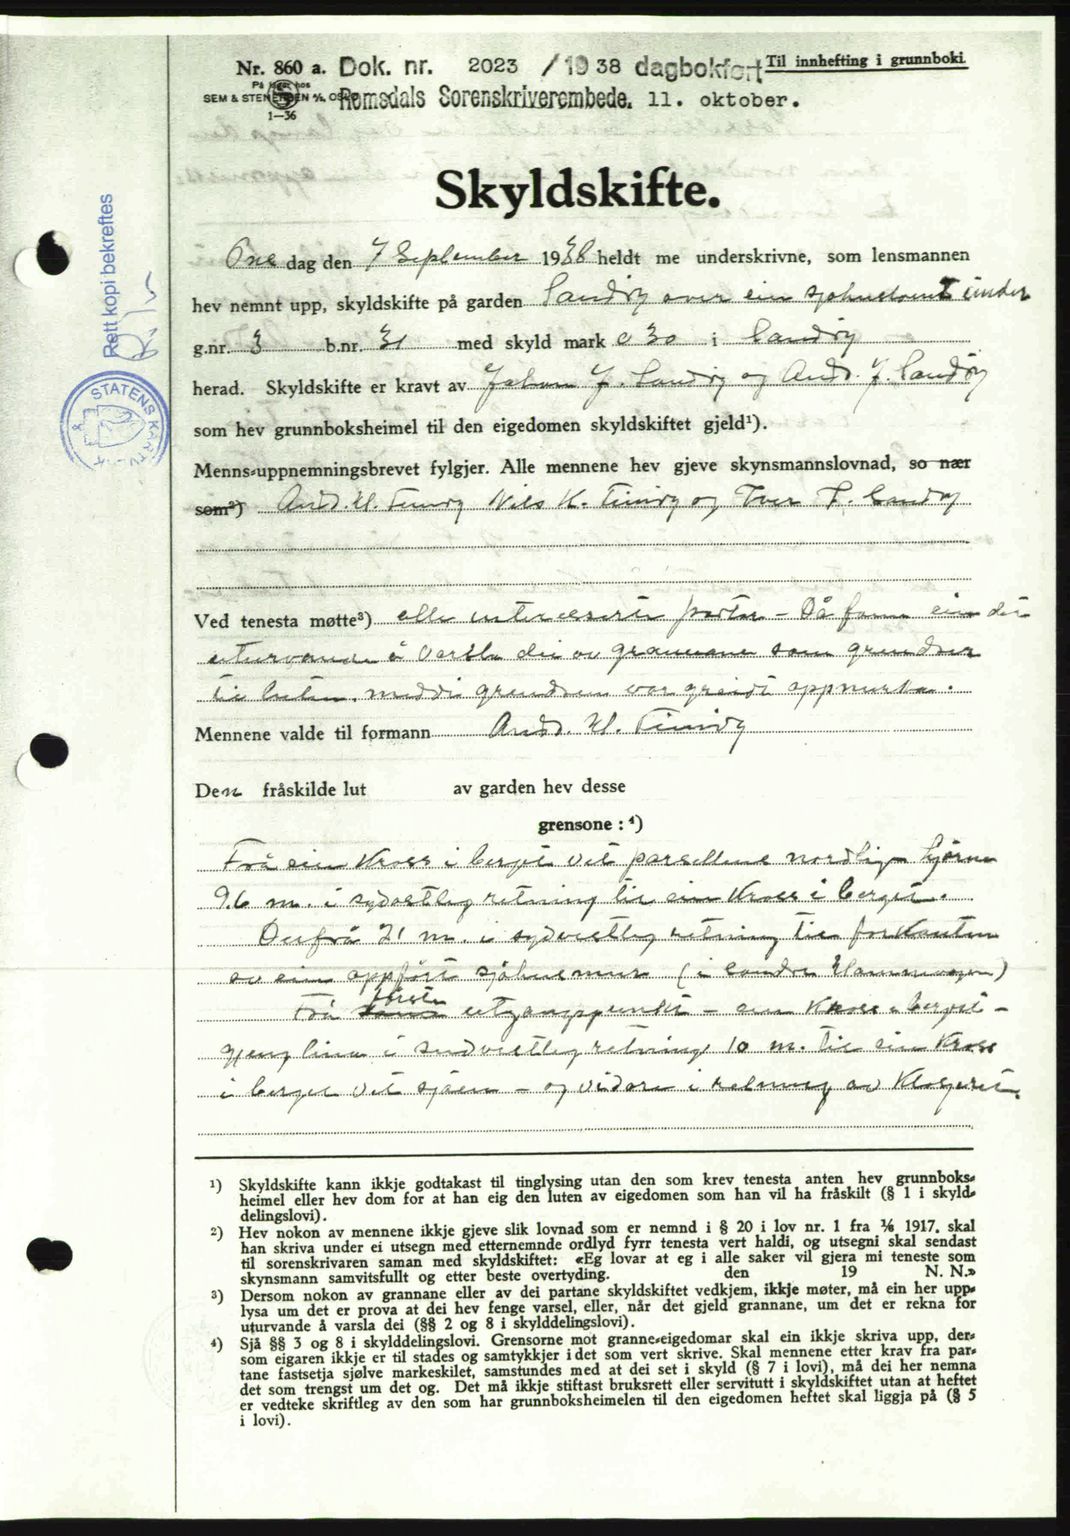 Nr. 860 a. Dok. nr. 2023 /1938 dagbokført Til innhefting i grunnboki
På lager hos
SEM & STENERSEN A/S, OSLO Romsdals Sorenskriverembede. 11. oktober.
1—36
Skyldskifte.
Rett kopi bekreftes
STATENS KARTV
Ons dag den 7 September 1938 heldt me underskrivne, som lensmannen
hev nemnt upp, skyldskifte på garden Sandøy over ein sjøhustomt under
g.nr. 3 b.nr. 31 med skyld mark 0 30 i Sandøy
herad. Skyldskifte er kravt av Johan J. Sandøy og And. J. Sandøy
som hev grunnboksheimel til den eigedomen skyldskiftet gjeld¹).
Menns-uppnemningsbrevet fylgjer. Alle mennene hev gjeve skynsmannslovnad, so nær
som²) And. H. Finnøy Nils K. Finnøy og Iver F. Sandøy
Ved tenesta møtte³) alle interesserte partar - Då fann ein det
uturvande å varsla dei av grannane som grensar
til luten, medde grensene var greidt oppmerka.
Mennene valde til formann And. H. Finnøy
Den fråskilde lut av garden hev desse
grensone: ⁴)
Frå ein Kross i berget vet parsellens nordlige hjørne
9.6 m. i sydostleg retning til ein Kross i berget.
Derfrå 21 m. i sydvestleg retning til forkanten
av ein oppført sjøhusmur (i søndre
Frå første utgangspunkt - ein Kross i berget -
gjeng lina i sudvestleg retning 10 m. til ein Kross
i berget vet sjøen - og vidare i retning av
¹) Skyldskifte kann ikkje godtakast til tinglysing utan den som krev tenesta anten hev grunnboks-
heimel eller hev dom for at han eig den luten av eigedomen som han vil ha fråskilt (§ 1 i skyld-
delingslovi).
²) Hev nokon av mennene ikkje gjeve slik lovnad som er nemnd i § 20 i lov nr. 1 fra 1/6 1917, skal
han skriva under ei utsegn med etternemnde ordlyd fyrr tenesta vert haldi, og utsegni skal sendast
til sorenskrivaren saman med skyldskiftet: «Eg lovar at eg i alle saker vil gjera mi teneste som
skynsmann samvitsfullt og etter beste overtyding. den 19 N. N.»
³) Dersom nokon av grannane eller av dei partane skyldskiftet vedkjem, ikkje møter, må ein her upp-
lysa um det er prova at dei hev fenge varsel, eller, når det gjeld grannane, um det er rekna for
uturvande å varsla dei (§§ 2 og 8 i skylddelingslovi).
⁴) Sjå §§ 3 og 8 i skylddelingslovi. Grensorne mot granne-eigedomar skal ein ikkje skriva upp, der-
som eigaren ikkje er til stades og samtykkjer i det som vert skrive. Skal mennene etter krav fra par-
tane fastsetja sjølve markeskilet, samstundes med at dei set i skyld (§ 7 i lovi), må dei her nemna
det som trengst um det og. Det må ikkje stiftast bruksrett eller servitutt i skyldskiftet utan at heftet
er vedteke skriftleg av den som har grunnboksheimelen til den eigedomen heftet skal liggja på (§ 5
i lovi).